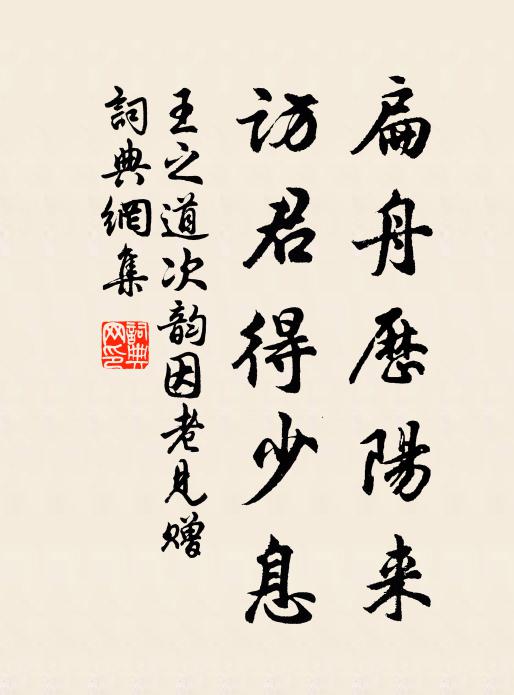 扁舟歷陽来
訪君得少息
王之道次韵因老見贈
詞典網集
詞典网印